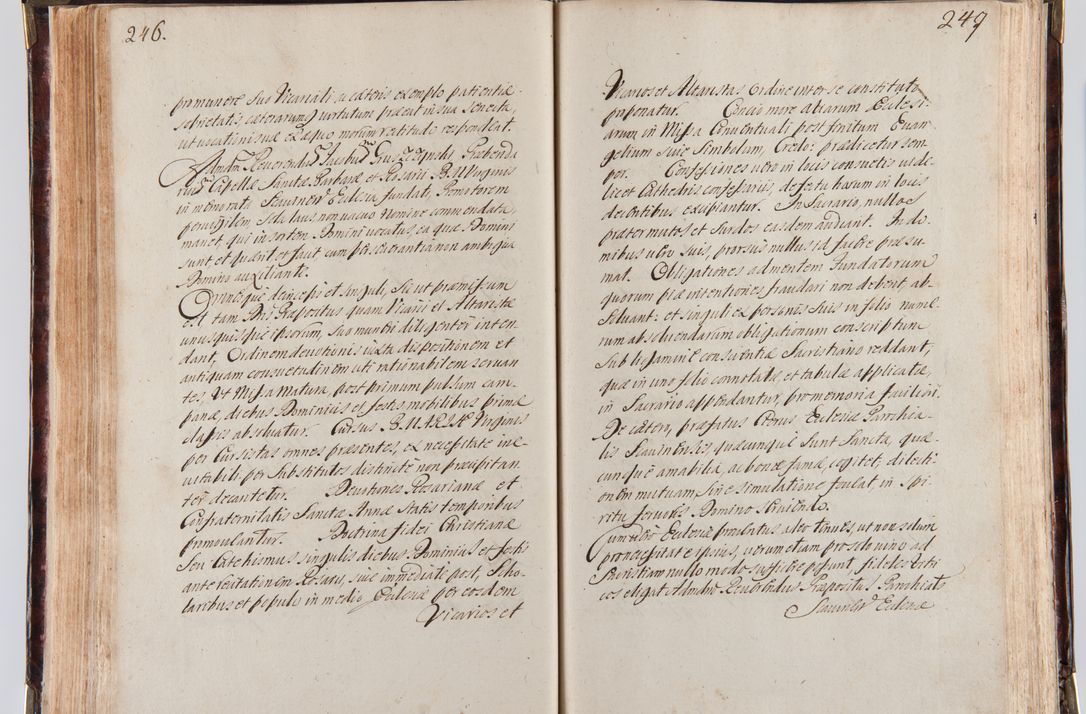 246.
pro munere suo Vicariali, ac cæteris exemplo patientiæ
sobrietatis cæterarumq virtutum præeat in sua senecta,
ut vocationi suæ ex æquo morum rectitudo respondeat.
Admodum Reverendus Jacobus Præbenda
rius Capellæ Sanctæ Barbaræ et Rosarii B. M. Virginis
in memorata Ecclesia fundatæ, Promotorem
sola laus non vacuo nomine commendata,
manet, qui in sortem Domini vocatus, ea quæ Domini
sunt et quærit et facit cum perseverantia non ambigua
Domino auxiliante.
Cæterique deinceps et singuli, sicut præmissum
est tam Dnus Præpositus quam Vicarii et Altaristæ
unusquisque ipsorum, suo muneri diligenter inten
dant, Ordinem devotionis iuxta dispositionem et
antiquam consuetudinem uti rationabilem servan
tes. Ut Missa Matura, post primum pulsum cam-
panæ, diebus Dominicis et festis mobilibus prima
elapsis absolvatur. Cursus B. MARIÆ Virginis
per Cursistas omnes præsentes, ex necessitate ine
vitabili per Substitutos distincte non præcipitan
ter decantetur. Devotiones Rosarianæ et
Confraternitatis Sanctæ Annæ statis temporibus
promoveantur. Doctrina fidei Christianæ
seu Catechismus singulis diebus Dominicis et festis
ante recitationem Rosarii, sive immediate post, Scho
laribus et populo in medio Ecclesiæ per eosdem
Vicarios et
249
Vicarios et Altaristas Ordine inter se constituto
proponatur. Concio more aliarum Ecclesi
arum in Missa Conventuali post finitum Evan
gelium sive Simbolum, Credo: prædicetur sem
per. Confessiones vero in locis consuetis vide
licet Cathedris confessariis, defectu harum in locis
decentibus excipiantur. In Sacrario, nullos
præter natos et surdos easdem audiant. In do
mibus vero suis, prorsus nullus id facere præsu
mat. Obligationes ad mentem Fundatorum
quorum piæ intentiones fraudari non debent ab
solvant: et singuli ex personis suis in folio nume
rum absolvendarum obligationum conscriptum
sub examine conscientiæ Sacristiano reddant,
quæ in uno folio connotatæ, et tabulæ applicatæ,
in Sacrario appendantur, pro memoria faciliori.
De cætero, præfatus Clerus Ecclesiæ Parochia
lis quæcunque sunt sancta, quæ
cunque amabilia, ac bonæ famæ, cogitet, dilecti
onem mutuam, sine simulatione foveat, in Spi
ritu fervens Domino serviendo.
Cum vero Ecclesiæ proventus adeo tenues, ut non solum
pro necessitate ipsius, verum etiam pro solo vino ad
Sacristiam nullo modo sufficere possunt, fideles
eligat Admodum Reverendus Præpositus Parochialis
Ecclesiæ